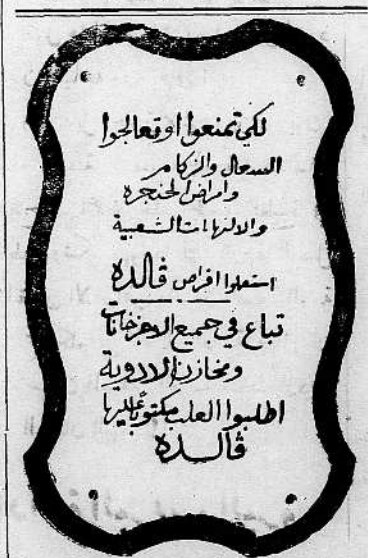 لكي تمنعوا او تعالجوا
السعال والزكام
وامراض الحنجره
والالتهابات الشعبية
استعملوا اقراص ڤالده
تباع في جميع الاجزخانات
ومخازن الادوية
اطلبوا العلب مكتوباً عليها
ڤالده